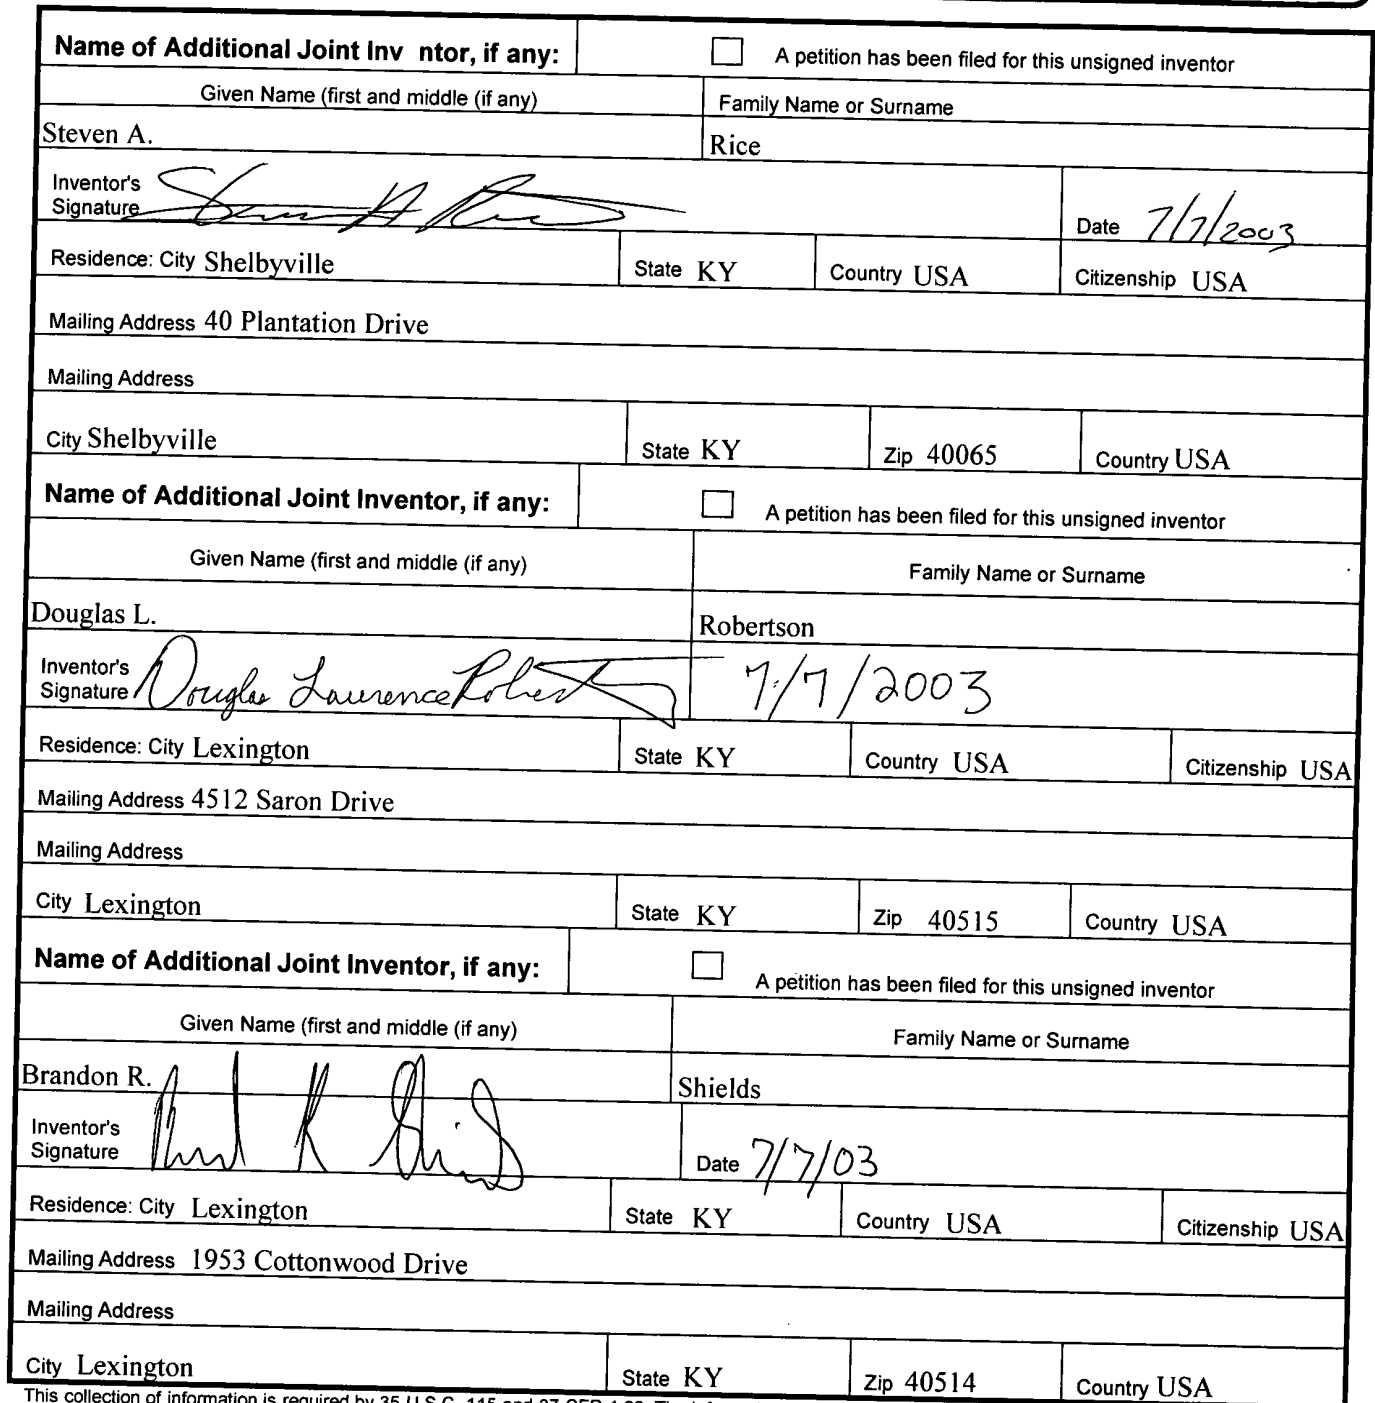 Name of Additional Joint Inv ntor, if any: A petition has been filed for this unsigned inventor
Given Name (first and middle (if any) Family Name or Surname
Steven A. Rice
Inventor's
Signature Date 7/7/2003
Residence: City Shelbyville State KY Country USA Citizenship USA
Mailing Address 40 Plantation Drive
Mailing Address
City Shelbyville State KY Zip 40065 Country USA
Name of Additional Joint Inventor, if any: A petition has been filed for this unsigned inventor
Given Name (first and middle (if any) Family Name or Surname
Douglas L. Robertson
Inventor's
Signature Douglas Lawrence Robertson 7/7/2003
Residence: City Lexington State KY Country USA Citizenship USA
Mailing Address 4512 Saron Drive
Mailing Address
City Lexington State KY Zip 40515 Country USA
Name of Additional Joint Inventor, if any: A petition has been filed for this unsigned inventor
Given Name (first and middle (if any) Family Name or Surname
Brandon R. Shields
Inventor's
Signature Date 7/7/03
Residence: City Lexington State KY Country USA Citizenship USA
Mailing Address 1953 Cottonwood Drive
Mailing Address
City Lexington State KY Zip 40514 Country USA
This collection of information is required by 35 U.S.C. 115 and 37 CFR